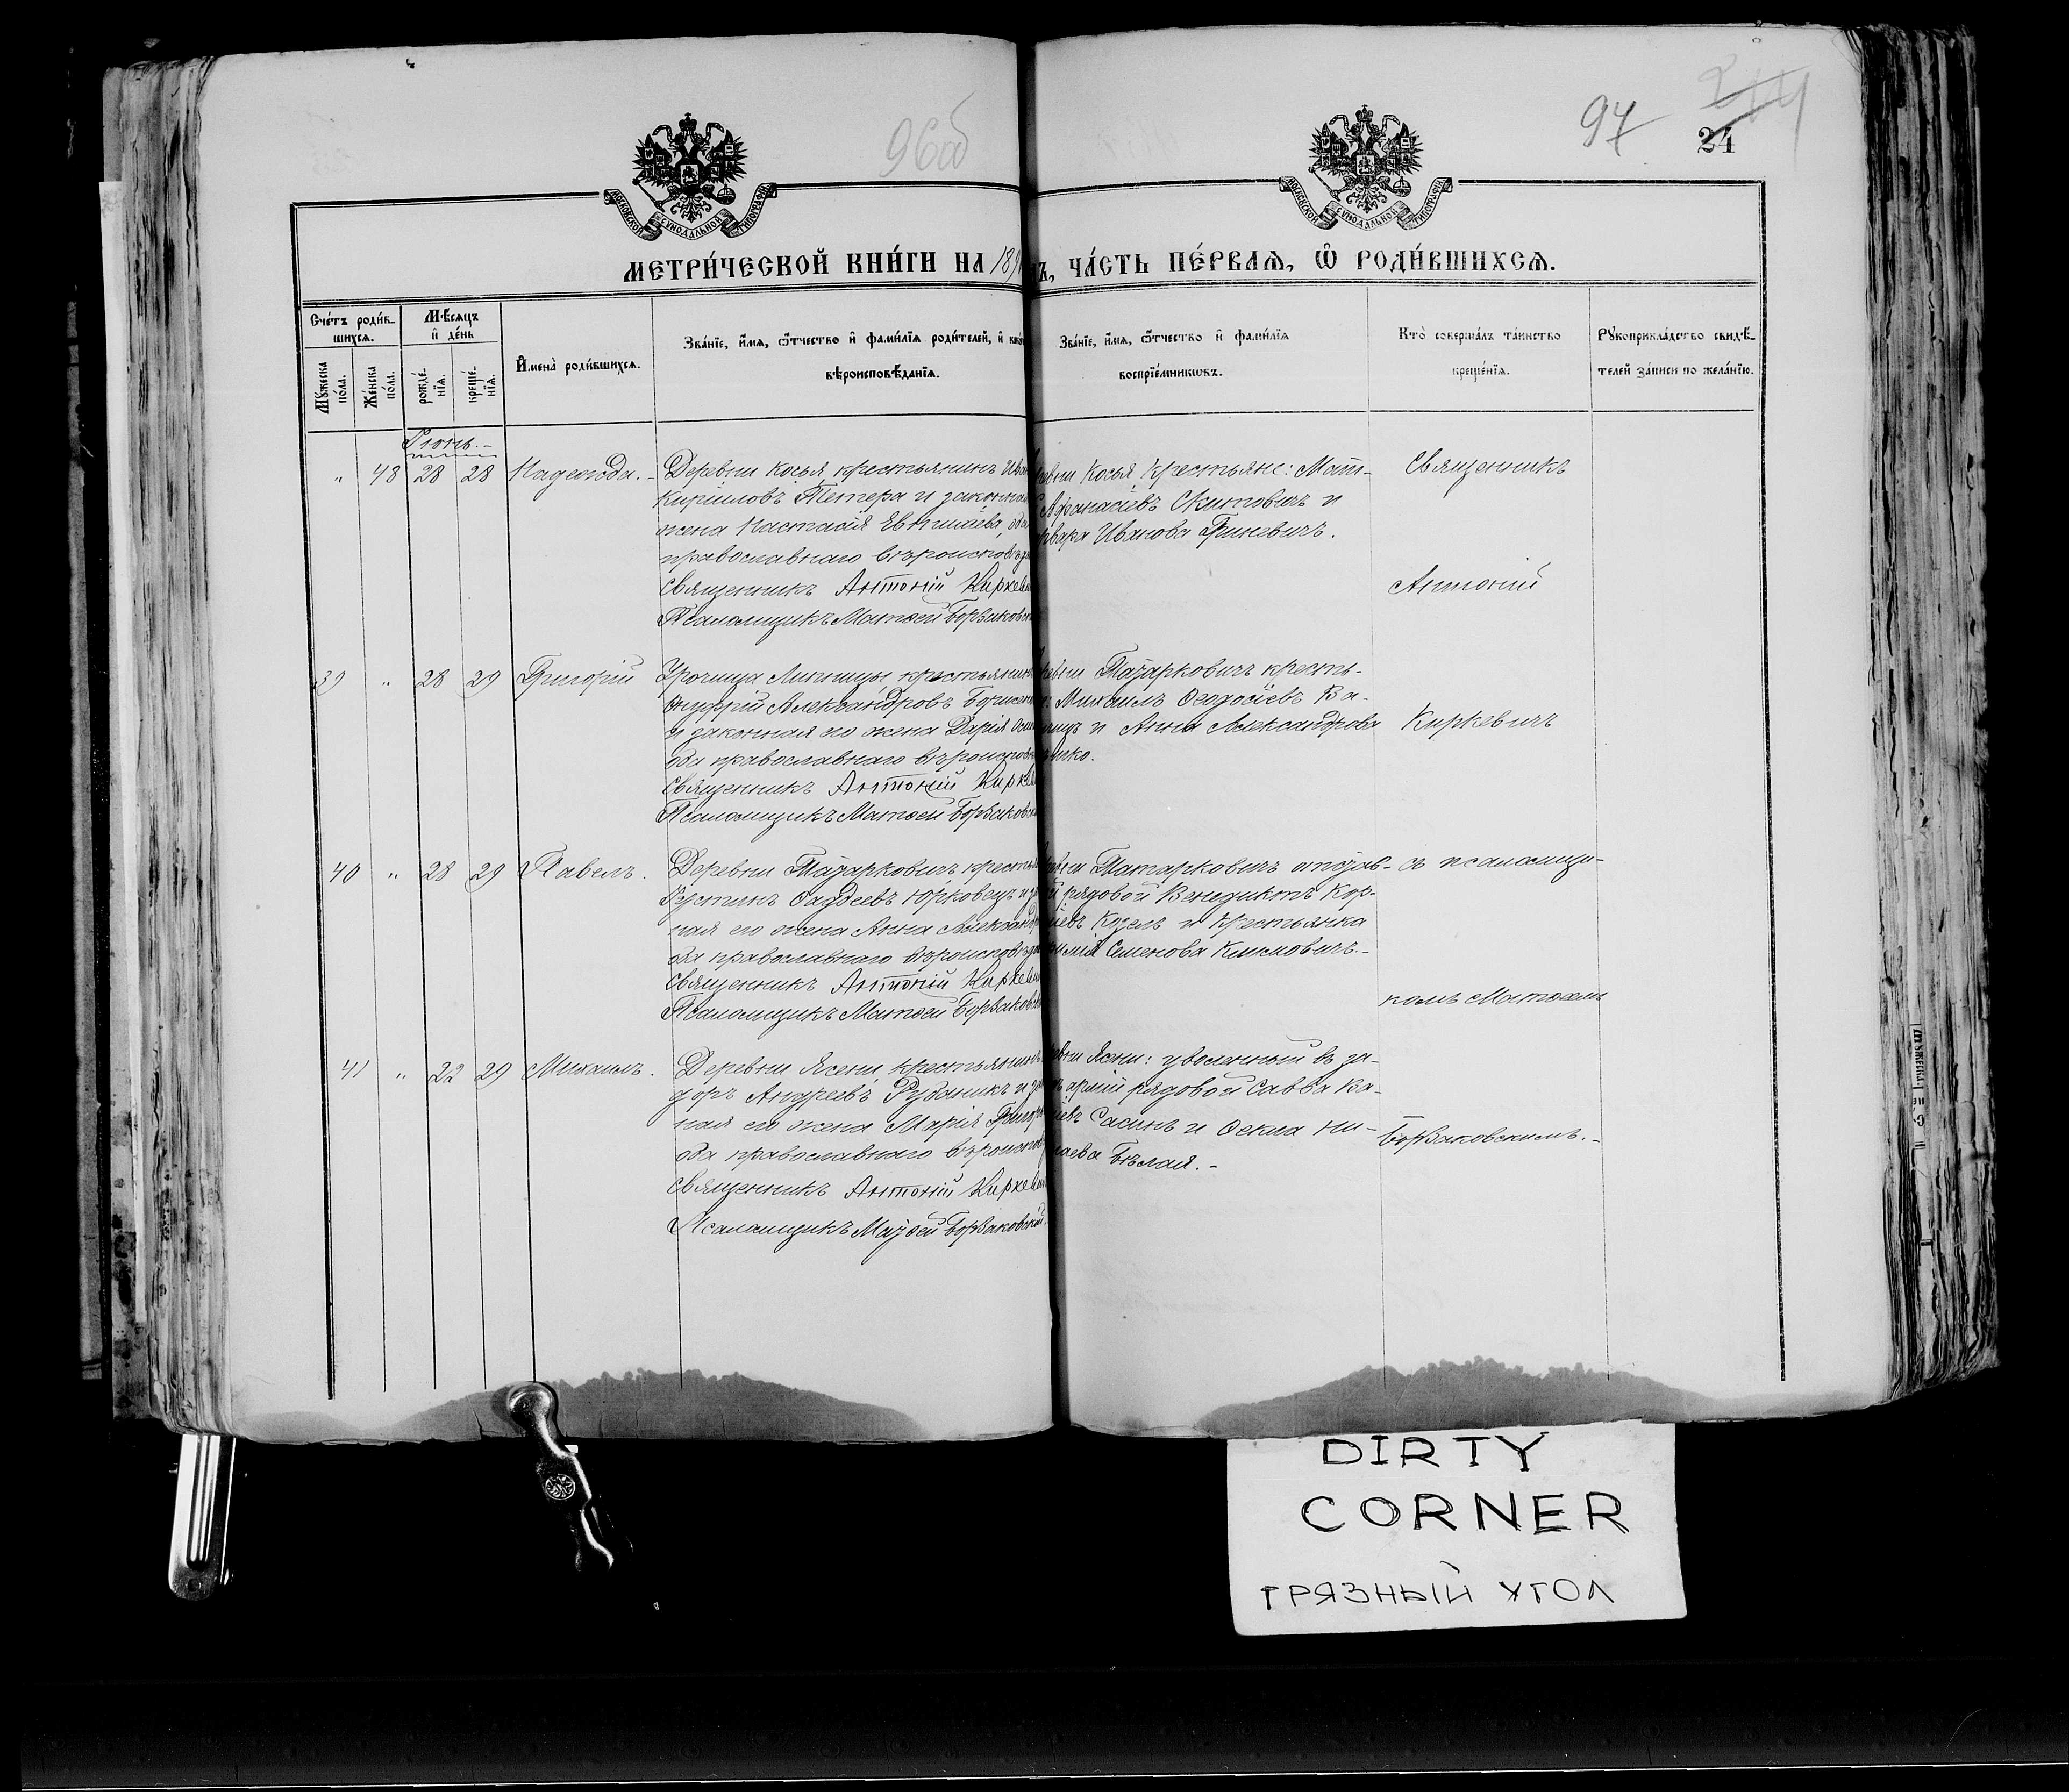 96об
97
214
24
МОСКОВСКОЙ СѴНОДАЛЬНОЙ ТИПОГРАФІИ
МОСКОВСКОЙ СѴНОДАЛЬНОЙ ТИПОГРАФІИ
МЕТРИ́ЧЕСКОЙ КНИ́ГИ НА 189
Ъ, ЧА́СТЬ ПЕ́РВАѦ, Ѡ РОДИ́ВШИХСѦ.
Сче́тъ роди́в-
шихсѧ.
Мꙋ́жеска по́ла.
Же́нска по́ла.
Мѣ́сѧцъ
и҆ де́нь
рожде́-
нїѧ.
креще́-
нїѧ.
И҆мена̀ роди́вшихсѧ.
Зва́нїе, и҆́мѧ, ѻ҆́тчество и҆ фами́лїѧ роди́телей, и҆
вѣроисповѣ́данїѧ.
Зва́нїе, и҆́мѧ, ѻ҆́тчество и҆ фами́лїѧ
воспрїе́мникѡвъ.
Кто̀ соверша́лъ та́инство
креще́нїѧ.
Рꙋкоприкла́дство свидѣ́-
телей за́писи по жела́нїю.
Іюнь.-
" 48 28 28 Надежда.- Деревни Косья, крестьянинъ Ив
Кириловъ Тетера и законная
жена Настасія Евтихіева, оба
православнаго вѣроисповѣда
Священникъ Антоній Киркеви
Псаломщикъ Матѳей Борзаковск
евни Косья, крестьяне: Мат-
Афанасіевъ Скитовичъ и
рвара Иванова Гриневичъ.
Священникъ
Антоній
39 " 28 29 Григорій Урочища Липницы, крестьянинъ
Онуфрій Александровъ Борисе
и законная его жена Дарія Оси
оба православнаго вѣроисповѣ
Священникъ Антоній Кирке
Псаломщикъ Матѳей Борзаковск
евни Татарковичъ кресть-
Михаилъ Ѳеодосіевъ Ва-
и Анна Александрова
нко.
Киркевичъ
40 " 28 29 Павелъ. Деревни Татарковичъ, крестья
Іустинъ Ѳаддеевъ Юрковецъ и за
ная его жена Анна Александр
оба православнаго вѣроисповѣда
Священникъ Антоній Киркеви
Псаломщикъ Матѳей Борзаковск
евни Татарковичъ отстав-
й рядовой Венедиктъ Кор-
іевъ Козелъ и крестьянка
имія Семенова Климовичъ.-
съ псаломщи-
комъ Матѳеемъ
41 " 22 29 Михаилъ. Деревни Ясени крестьянинъ
доръ Андреевъ Рубаникъ и зак
ная его жена Марія Григорь
оба православнаго вѣроиспов
Священникъ Антоній Киркеви
Псаломщикъ Матѳей Борзаковскій.
евни Ясени: уволенный въ за-
съ арміи рядовой Савва Ва-
іевъ Сасинъ и Ѳекла Ни-
лаева Бѣлая.-
Борзаковскимъ.-
DIRTY
CORNER
ГРЯЗНЫЙ УГОЛ